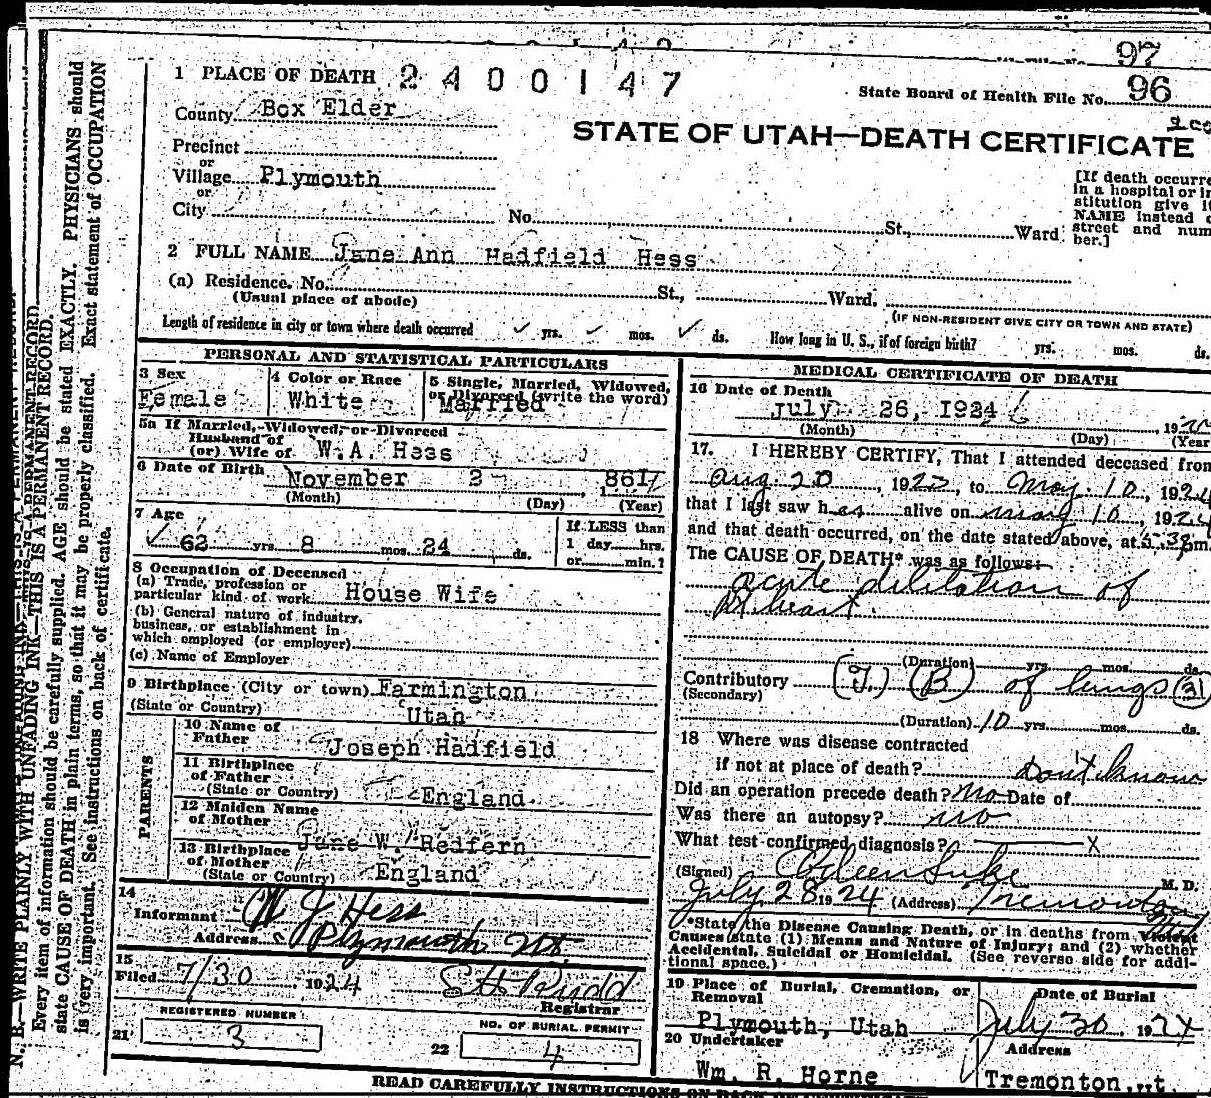 97
1 PLACE OF DEATH 2400147
State Board of Health File No. 96
County Box Elder
STATE OF UTAH—DEATH CERTIFICATE
Precinct
or
Village Plymouth
or
City No. St., Ward
[If death occurre
in a hospital or in
stitution give it
NAME instead o
street and num
ber.]
2 FULL NAME Jane Ann Hadfield Hess
(a) Residence. No. St., Ward.
(Usual place of abode)
(IF NON-RESIDENT GIVE CITY OR TOWN AND STATE)
Length of residence in city or town where death occurred yrs. mos. ds. How long in U. S., if of foreign birth? yrs. mos. ds.
PERSONAL AND STATISTICAL PARTICULARS
3 Sex
Female
4 Color or Race
White
5 Single, Married, Widowed,
or Divorced (write the word)
Married
5a If Married, Widowed, or Divorced
Husband of
(or) Wife of W.A. Hess
6 Date of Birth November 2 1861
(Month) (Day) (Year)
7 Age
62 yrs. 8 mos. 24 ds.
If LESS than
1 day hrs.
or min.?
8 Occupation of Deceased
(a) Trade, profession or
particular kind of work House Wife
(b) General nature of industry,
business, or establishment in
which employed (or employer)
(c) Name of Employer
9 Birthplace (City or town) Farmington
(State or Country) Utah
PARENTS
10 Name of
Father Joseph Hadfield
11 Birthplace
of Father
(State or Country) England
12 Maiden Name
of Mother Jane W. Redfern
13 Birthplace
of Mother
(State or Country) England
14
Informant W J Hess
Address Plymouth Ut.
15
Filed 7/30 1924
Registrar
REGISTERED NUMBER
21 3
NO. OF BURIAL PERMIT
22 4
MEDICAL CERTIFICATE OF DEATH
16 Date of Death
July 26, 1924
(Month) (Day) (Year
17. I HEREBY CERTIFY, That I attended deceased from
Aug. 20, 1923, to May 10, 1924
that I last saw her alive on May 10, 1924
and that death occurred, on the date stated above, at 5:30 pm.
The CAUSE OF DEATH* was as follows:
acute dilitation of
heart.
(Duration) yrs. mos. ds.
Contributory (T.) (B) of lungs (31)
(Secondary)
(Duration) 10 yrs. mos. ds.
18 Where was disease contracted
if not at place of death? Don't know
Did an operation precede death? No Date of
Was there an autopsy? no
What test confirmed diagnosis? x
(Signed) M. D.
July 28 1924 (Address) Tremonton Utah
*State the Disease Causing Death, or in deaths from Violent
Causes state (1) Means and Nature of Injury; and (2) whether
Accidental, Suicidal or Homicidal. (See reverse side for addi-
tional space.)
19 Place of Burial, Cremation, or
Removal
Plymouth, Utah
Date of Burial
July 30, 1924
20 Undertaker
Wm. R. Horne
Address
Tremonton
READ CAREFULLY INSTRUCTIONS ON BACK OF CERTIFICATE
N. B.—WRITE PLAINLY WITH UNFADING INK—THIS IS A PERMANENT RECORD.
Every item of information should be carefully supplied. AGE should be stated EXACTLY. PHYSICIANS should
state CAUSE OF DEATH in plain terms, so that it may be properly classified. Exact statement of OCCUPATION
is very important. See instructions on back of certificate.